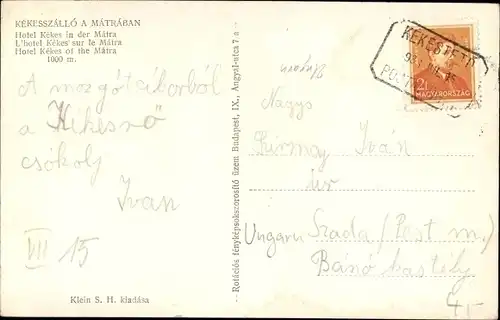 KÉKESSZÁLLÓ A MÁTRÁBAN
Hotel Kékes in der Mátra
L'hotel Kékes sur le Mátra
Hotel Kékes of the Mátra
1000 m.
A mozgótáborból
a
csókolj
Ivan
VII 15
Klein S. H. kiadása
Rotációs fényképsokszorosító üzem Budapest, IX., Angyal-utca 7 a
Ungarn
KÉKESTETŐ
21
MAGYARORSZÁG
Nagys
Szirmay Iván
úr
Ungarn Szada (Pest m.)
Bánó kastély
4,-